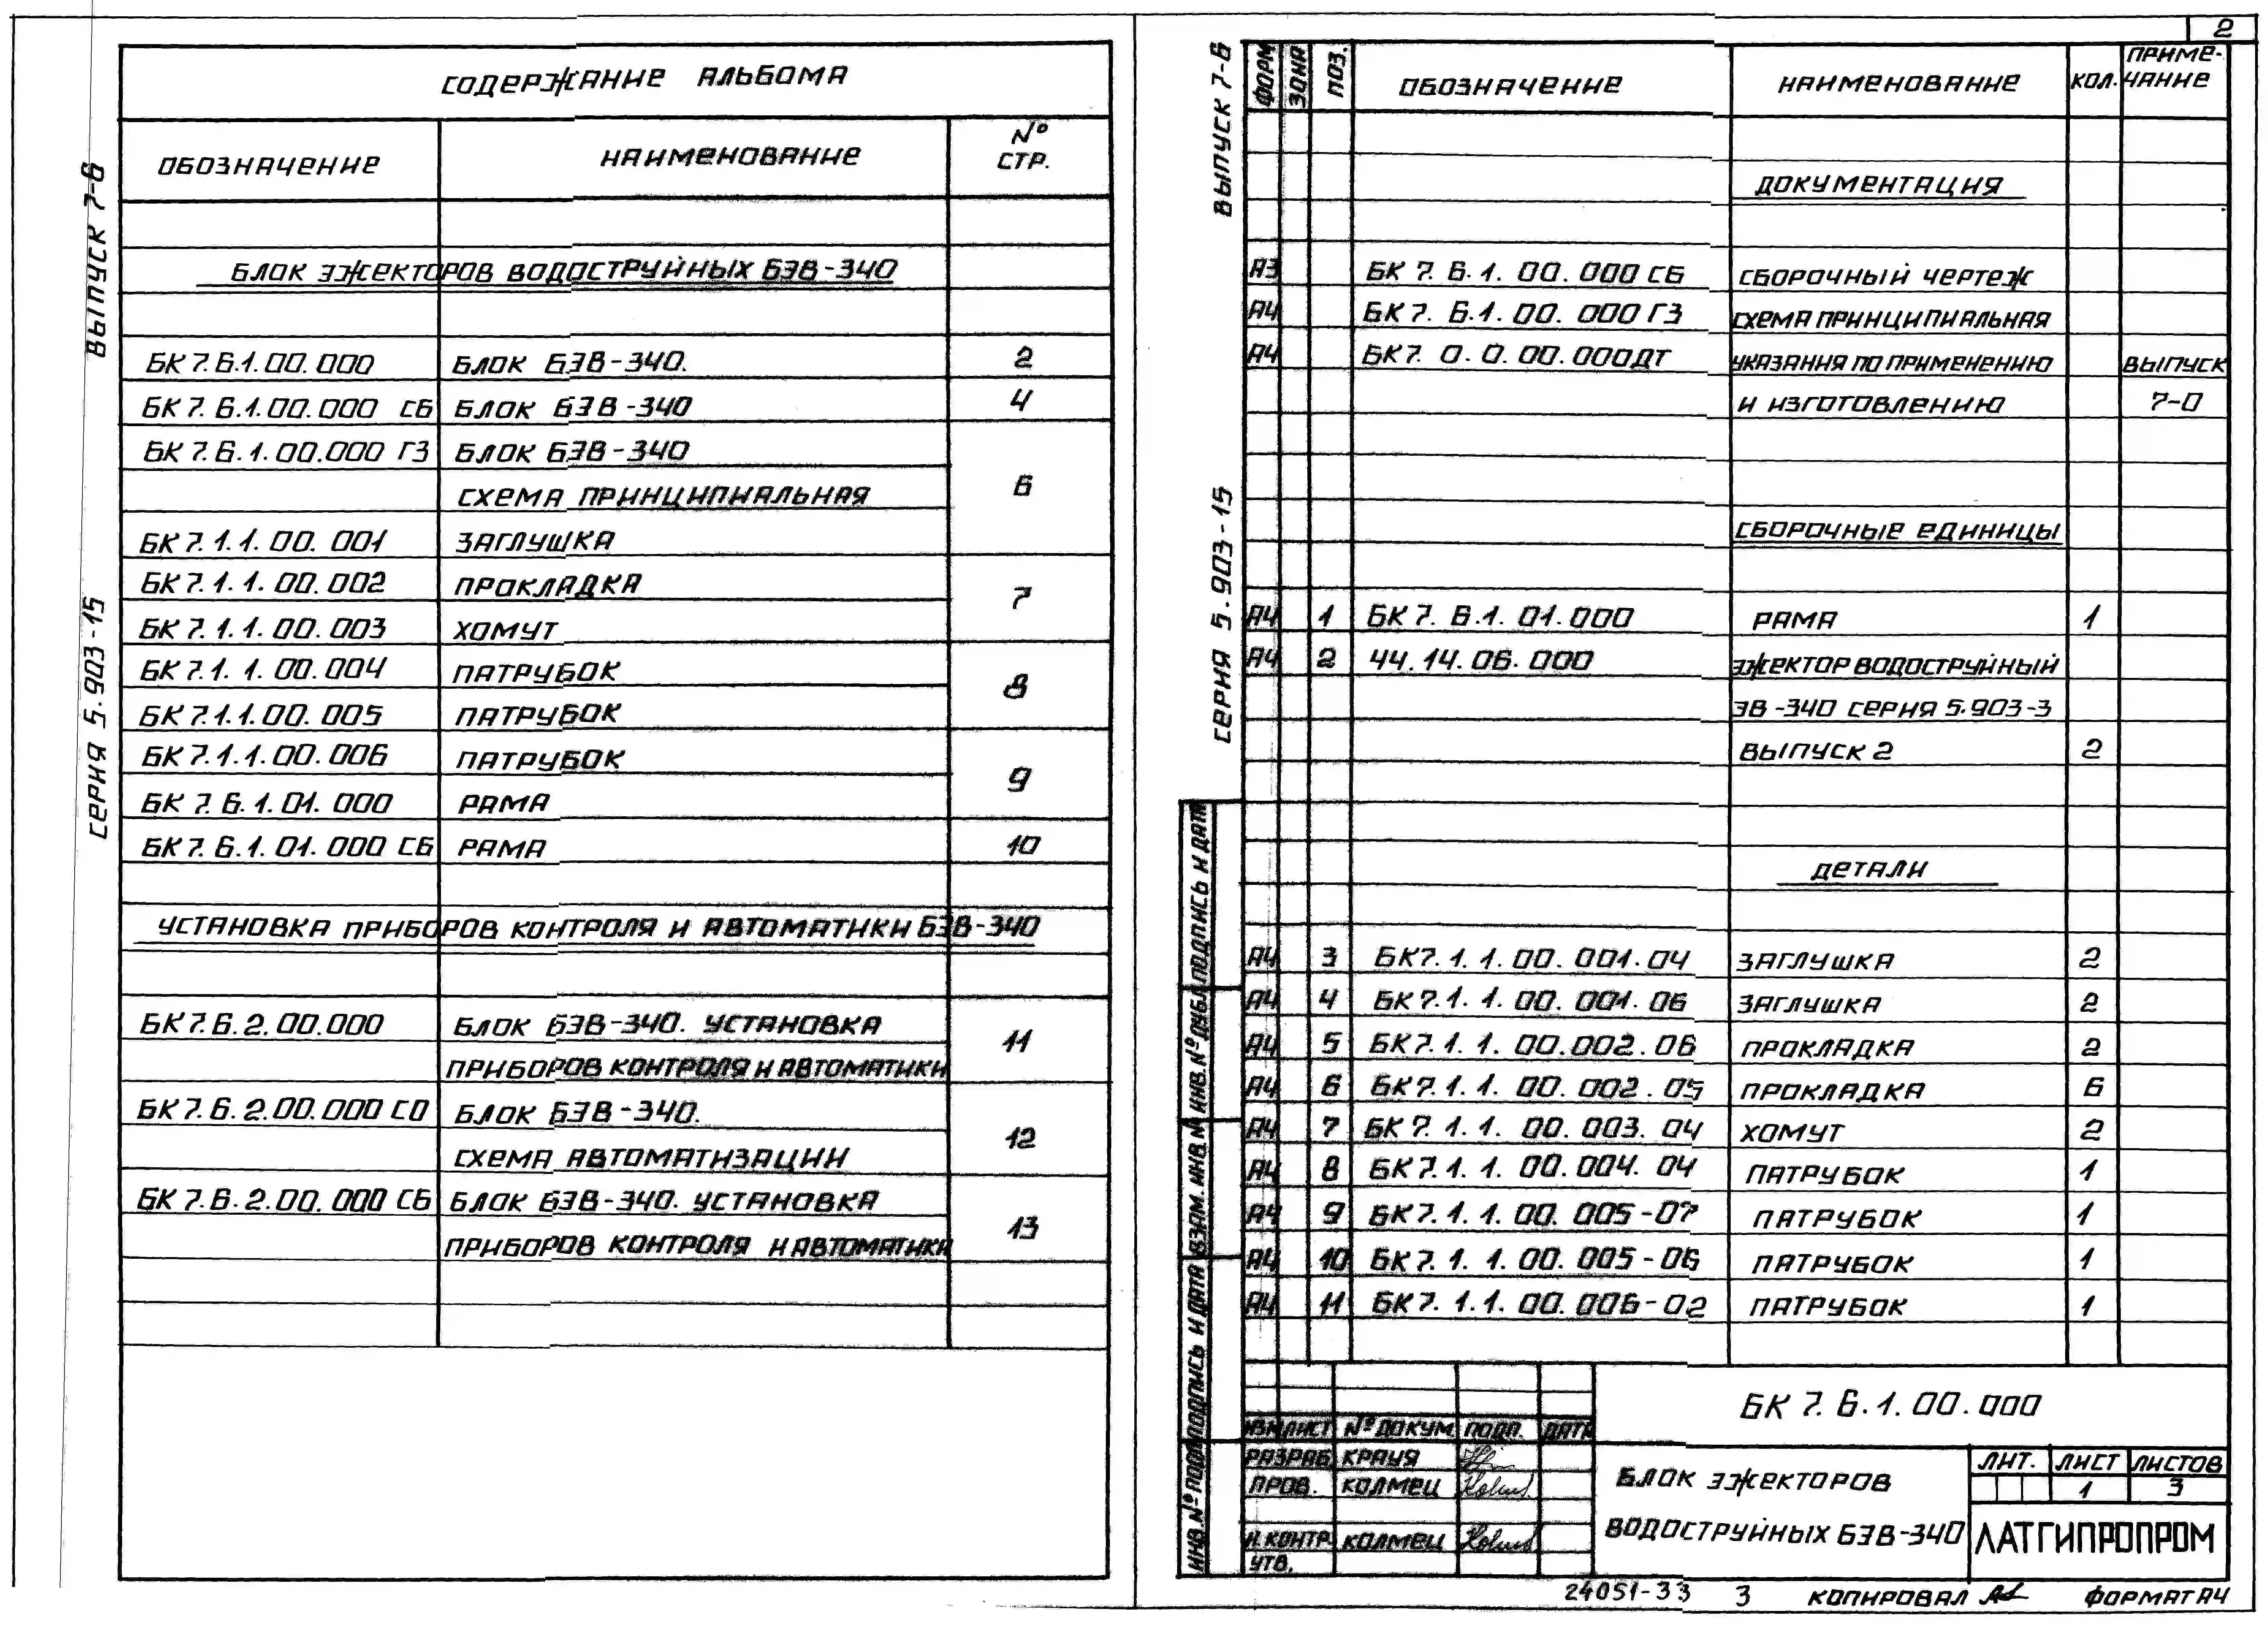 СОДЕРЖАНИЕ АЛЬБОМА
ОБОЗНАЧЕНИЕ НАИМЕНОВАНИЕ № СТР.
БЛОК ЭЖЕКТОРОВ ВОДОСТРУЙНЫХ БЭВ-340
БК 7.6.1.00.000 БЛОК БЭВ-340. 2
БК 7.6.1.00.000 СБ БЛОК БЭВ-340 4
БК 7.6.1.00.000 Г3 БЛОК БЭВ-340
СХЕМА ПРИНЦИПИАЛЬНАЯ 6
БК 7.1.1.00.001 ЗАГЛУШКА
БК 7.1.1.00.002 ПРОКЛАДКА 7
БК 7.1.1.00.003 ХОМУТ
БК 7.1.1.00.004 ПАТРУБОК 8
БК 7.1.1.00.005 ПАТРУБОК
БК 7.1.1.00.006 ПАТРУБОК 9
БК 7.6.1.01.000 РАМА
БК 7.6.1.01.000 СБ РАМА 10
УСТАНОВКА ПРИБОРОВ КОНТРОЛЯ И АВТОМАТИКИ БЭВ-340
БК 7.6.2.00.000 БЛОК БЭВ-340. УСТАНОВКА 11
ПРИБОРОВ КОНТРОЛЯ И АВТОМАТИКИ
БК 7.6.2.00.000 СО БЛОК БЭВ-340. 12
СХЕМА АВТОМАТИЗАЦИИ
БК 7.6.2.00.000 СБ БЛОК БЭВ-340. УСТАНОВКА 13
ПРИБОРОВ КОНТРОЛЯ И АВТОМАТИКИ
СЕРИЯ 5.903-15 ВЫПУСК 7-6
2
СЕРИЯ 5.903-15 ВЫПУСК 7-6
ФОРМ ЗОНА ПОЗ. ОБОЗНАЧЕНИЕ НАИМЕНОВАНИЕ КОЛ. ПРИМЕ-
ЧАНИЕ
ДОКУМЕНТАЦИЯ
А3 БК 7.6.1.00.000 СБ СБОРОЧНЫЙ ЧЕРТЕЖ
А4 БК 7.6.1.00.000 Г3 СХЕМА ПРИНЦИПИАЛЬНАЯ
А4 БК 7.0.0.00.000 ДТ УКАЗАНИЯ ПО ПРИМЕНЕНИЮ ВЫПУСК
И ИЗГОТОВЛЕНИЮ 7-0
СБОРОЧНЫЕ ЕДИНИЦЫ
А4 1 БК 7.6.1.01.000 РАМА 1
А4 2 44.14.06.000 ЭЖЕКТОР ВОДОСТРУЙНЫЙ
ЭВ-340 СЕРИЯ 5.903-3
ВЫПУСК 2 2
ДЕТАЛИ
А4 3 БК 7.1.1.00.001.04 ЗАГЛУШКА 2
А4 4 БК 7.1.1.00.001.06 ЗАГЛУШКА 2
А4 5 БК 7.1.1.00.002.06 ПРОКЛАДКА 2
А4 6 БК 7.1.1.00.002.05 ПРОКЛАДКА 6
А4 7 БК 7.1.1.00.003.04 ХОМУТ 2
А4 8 БК 7.1.1.00.004.04 ПАТРУБОК 1
А4 9 БК 7.1.1.00.005-07 ПАТРУБОК 1
А4 10 БК 7.1.1.00.005-06 ПАТРУБОК 1
А4 11 БК 7.1.1.00.006-02 ПАТРУБОК 1
ИНВ.№ ПОДЛ ПОДПИСЬ И ДАТА ВЗАМ.ИНВ.№ ИНВ.№ ДУБЛ ПОДПИСЬ И ДАТА
БК 7.6.1.00.000
ИЗМ ЛИСТ № ДОКУМ. ПОДП. ДАТА
РАЗРАБ. КРАУЯ
ПРОВ. КОЛМЕЦ
Н.КОНТР. КОЛМЕЦ
УТВ.
БЛОК ЭЖЕКТОРОВ
ВОДОСТРУЙНЫХ БЭВ-340
ЛИТ. ЛИСТ ЛИСТОВ
1 3
ЛАТГИПРОПРОМ
24051-33 3 КОПИРОВАЛ ФОРМАТ А4